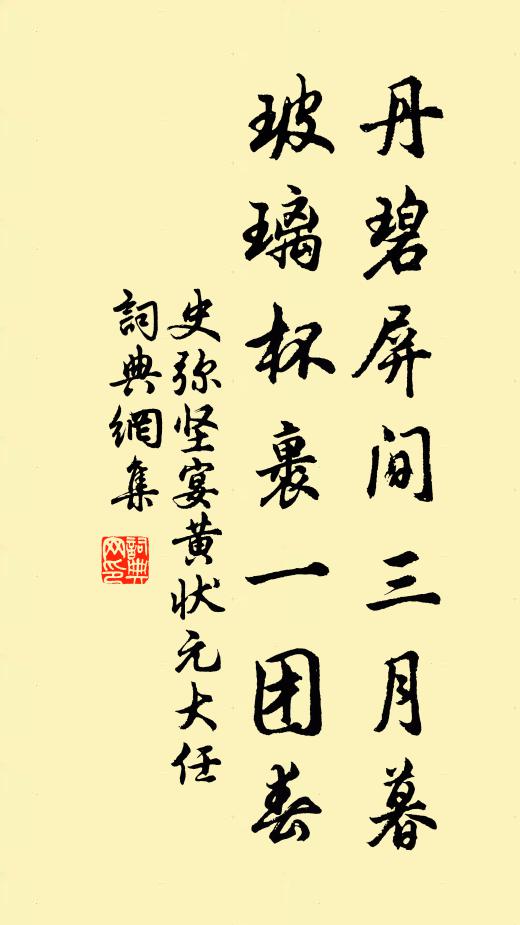 丹碧屏间三月暮
玻璃杯裹一团春
史弥坚宴黄状元大任
詞典網集
詞典
网印